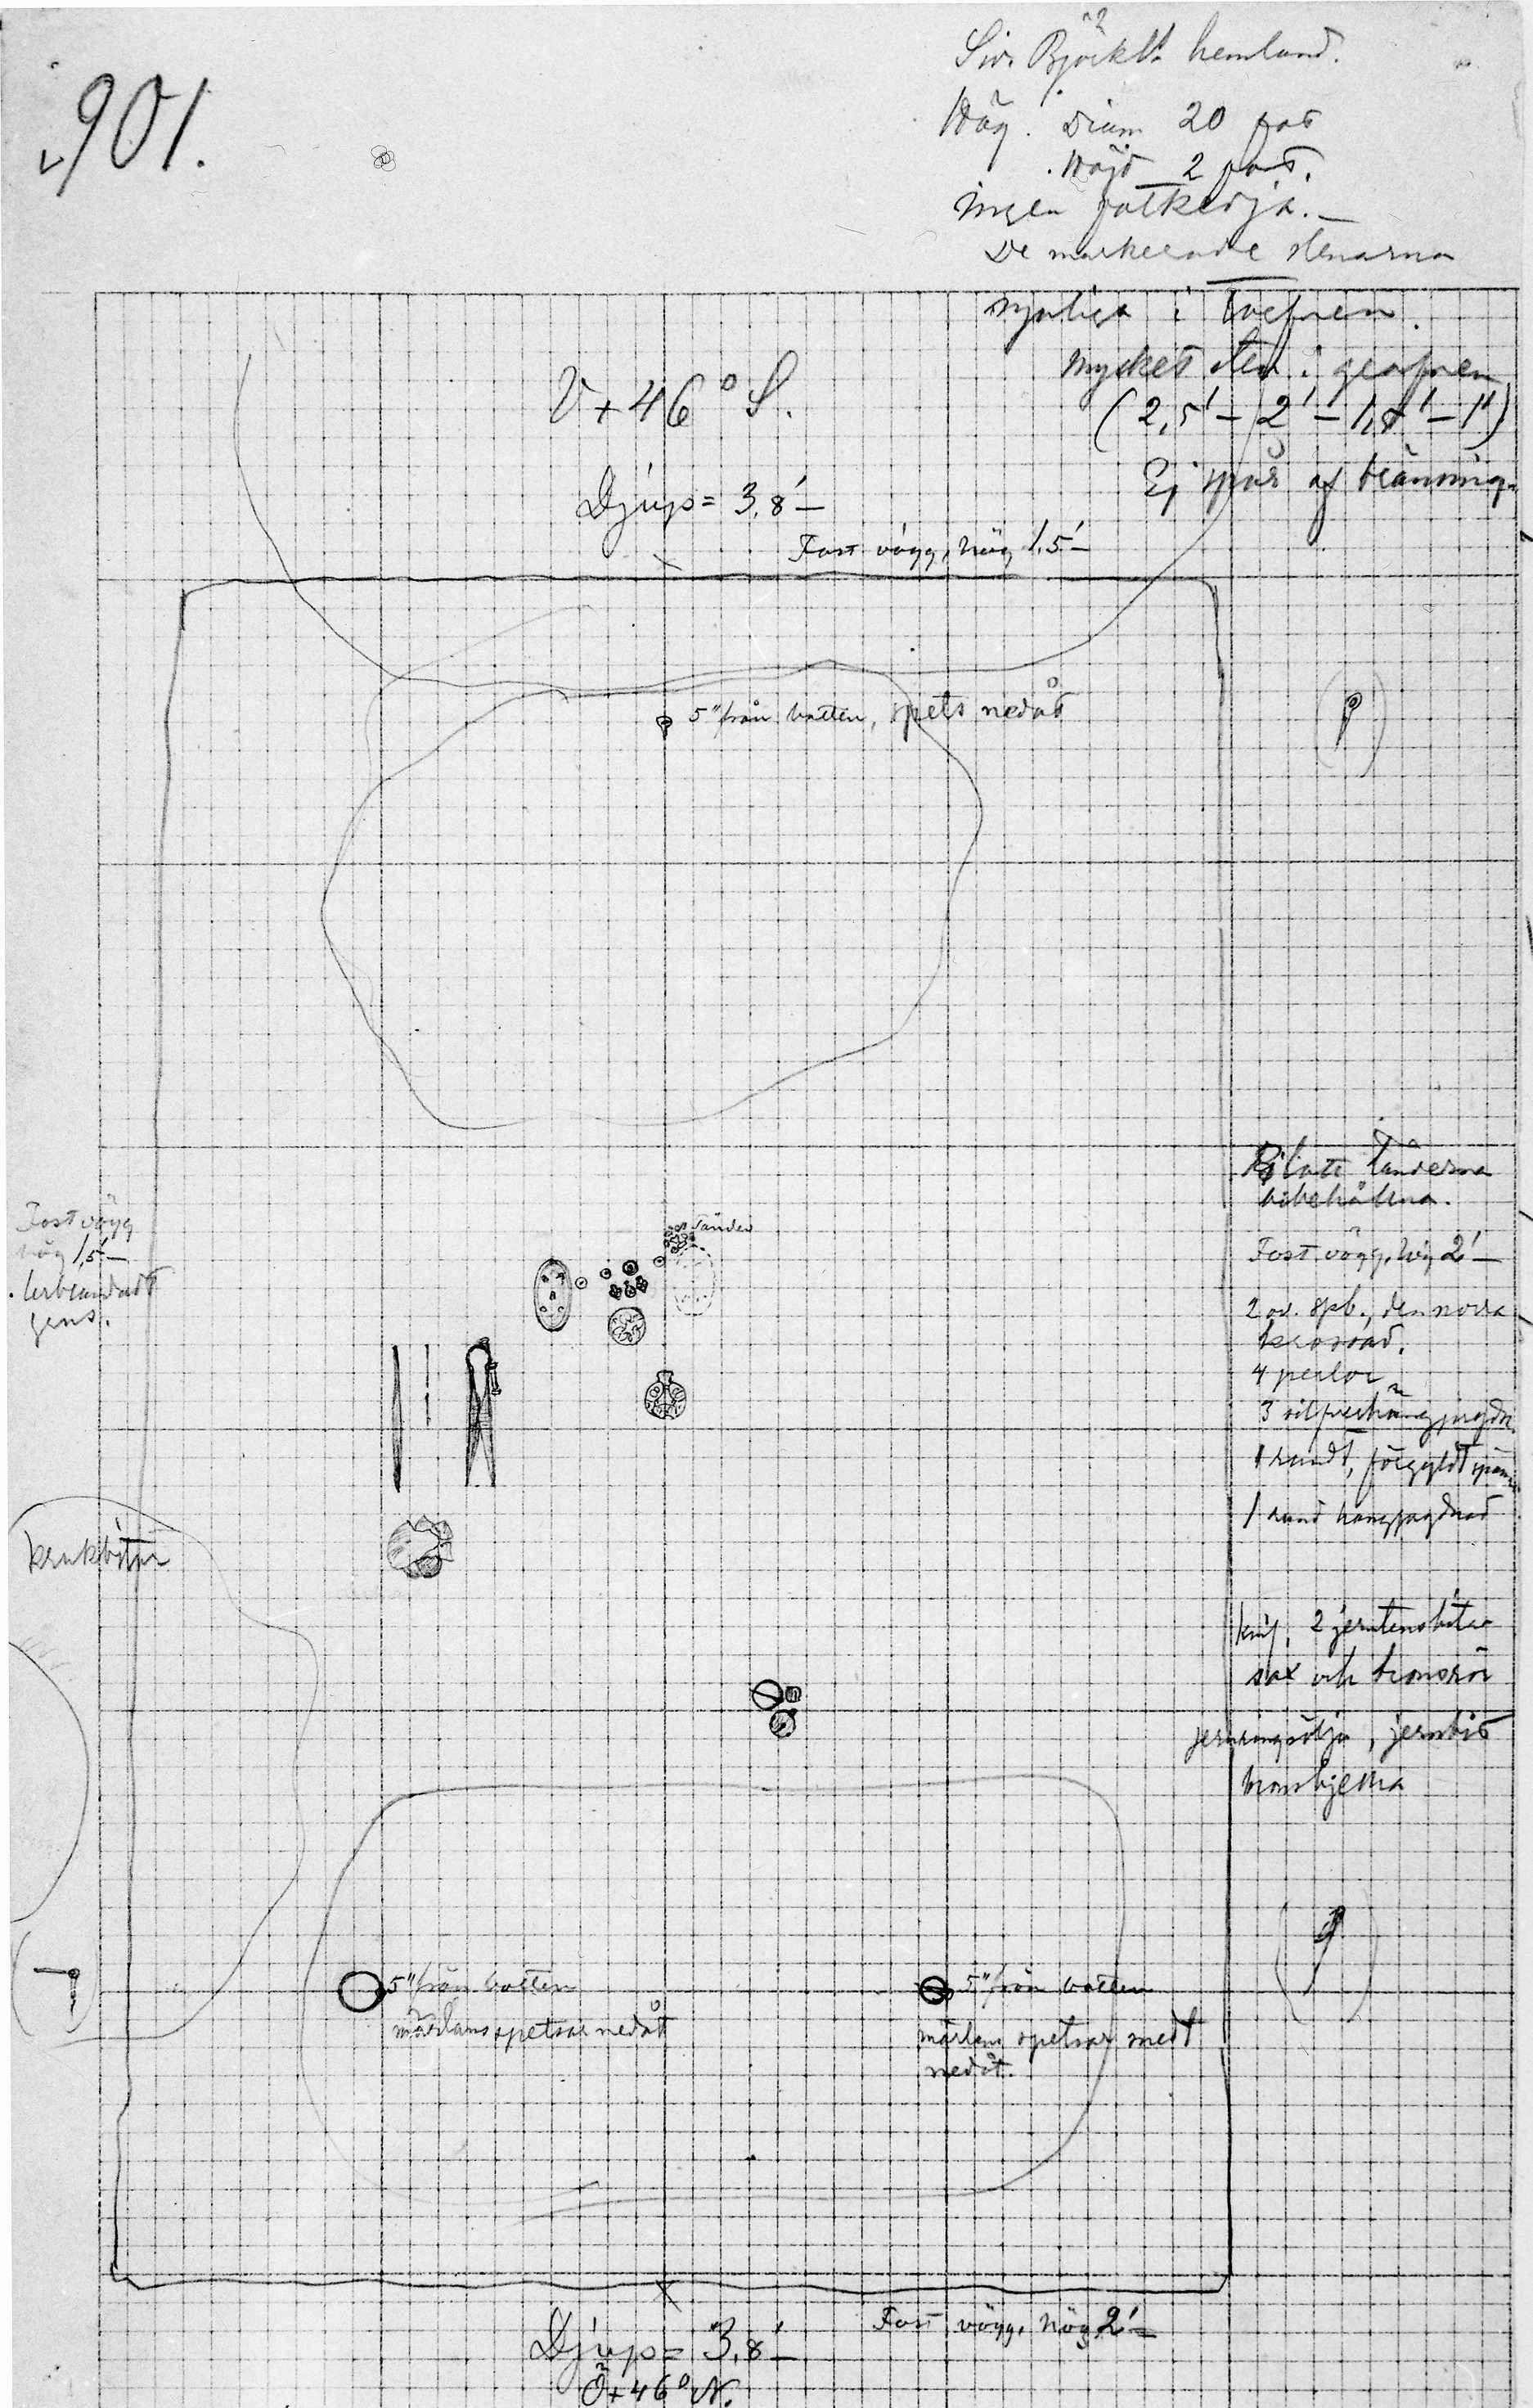 901.
hemland.
Hög. Diam 20 fot
Höjd 2 fot.
Ingen fotkedja.
De markerade stenarna
synliga i
Mycket sten i grafven
(2,5' - 2' - 1,8' - 1')
Ej spår af bränning.
V + 46° S.
Djup = 3,8'
Fast vägg, hög 1,5'
5" från botten, spets nedåt
tänderna
bibehållna.
Tänder
Fast vägg
hög 1,5'
grus.
Fast vägg, hög 2'
2 ov. spb., den norra
4 perlor
3
1 rundt, förgyldt
1 rund hängprydnad
krukbitar
knif, 2 jerntensbitar
sax och bronsrör
jernringsölja, jernbit
5" från botten
märlans spetsar nedåt
5" från botten
märlans spetsar
nedåt.
Fast vägg, hög 2'
Djup = 3,8'
Ö + 46° N.